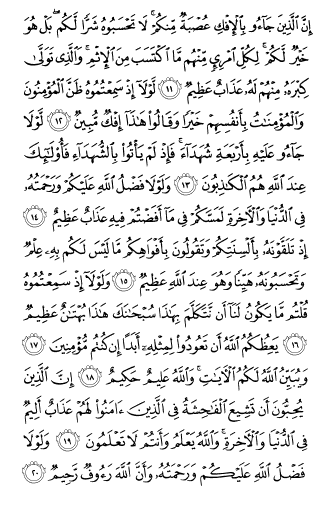 إِنَّ الَّذِينَ جَاءُو بِالْإِفْكِ عُصْبَةٌ مِّنكُمْ ۚ لَا تَحْسَبُوهُ شَرًّا لَّكُم ۖ بَلْ هُوَ
خَيْرٌ لَّكُمْ ۚ لِكُلِّ امْرِئٍ مِّنْهُم مَّا اكْتَسَبَ مِنَ الْإِثْمِ ۚ وَالَّذِي تَوَلَّىٰ
كِبْرَهُ مِنْهُمْ لَهُ عَذَابٌ عَظِيمٌ ١١ لَّوْلَا إِذْ سَمِعْتُمُوهُ ظَنَّ الْمُؤْمِنُونَ
وَالْمُؤْمِنَاتُ بِأَنفُسِهِمْ خَيْرًا وَقَالُوا هَٰذَا إِفْكٌ مُّبِينٌ ١٢ لَّوْلَا
جَاءُو عَلَيْهِ بِأَرْبَعَةِ شُهَدَاءَ ۚ فَإِذْ لَمْ يَأْتُوا بِالشُّهَدَاءِ فَأُولَٰئِكَ
عِندَ اللَّهِ هُمُ الْكَاذِبُونَ ١٣ وَلَوْلَا فَضْلُ اللَّهِ عَلَيْكُمْ وَرَحْمَتُهُ
فِي الدُّنْيَا وَالْآخِرَةِ لَمَسَّكُمْ فِي مَا أَفَضْتُمْ فِيهِ عَذَابٌ عَظِيمٌ ١٤
إِذْ تَلَقَّوْنَهُ بِأَلْسِنَتِكُمْ وَتَقُولُونَ بِأَفْوَاهِكُم مَّا لَيْسَ لَكُم بِهِ عِلْمٌ
وَتَحْسَبُونَهُ هَيِّنًا وَهُوَ عِندَ اللَّهِ عَظِيمٌ ١٥ وَلَوْلَا إِذْ سَمِعْتُمُوهُ
قُلْتُم مَّا يَكُونُ لَنَا أَن نَّتَكَلَّمَ بِهَٰذَا سُبْحَانَكَ هَٰذَا بُهْتَانٌ عَظِيمٌ
١٦ يَعِظُكُمُ اللَّهُ أَن تَعُودُوا لِمِثْلِهِ أَبَدًا إِن كُنتُم مُّؤْمِنِينَ ١٧
وَيُبَيِّنُ اللَّهُ لَكُمُ الْآيَاتِ ۚ وَاللَّهُ عَلِيمٌ حَكِيمٌ ١٨ إِنَّ الَّذِينَ
يُحِبُّونَ أَن تَشِيعَ الْفَاحِشَةُ فِي الَّذِينَ آمَنُوا لَهُمْ عَذَابٌ أَلِيمٌ
فِي الدُّنْيَا وَالْآخِرَةِ ۚ وَاللَّهُ يَعْلَمُ وَأَنتُمْ لَا تَعْلَمُونَ ١٩ وَلَوْلَا
فَضْلُ اللَّهِ عَلَيْكُمْ وَرَحْمَتُهُ وَأَنَّ اللَّهَ رَءُوفٌ رَّحِيمٌ ٢٠